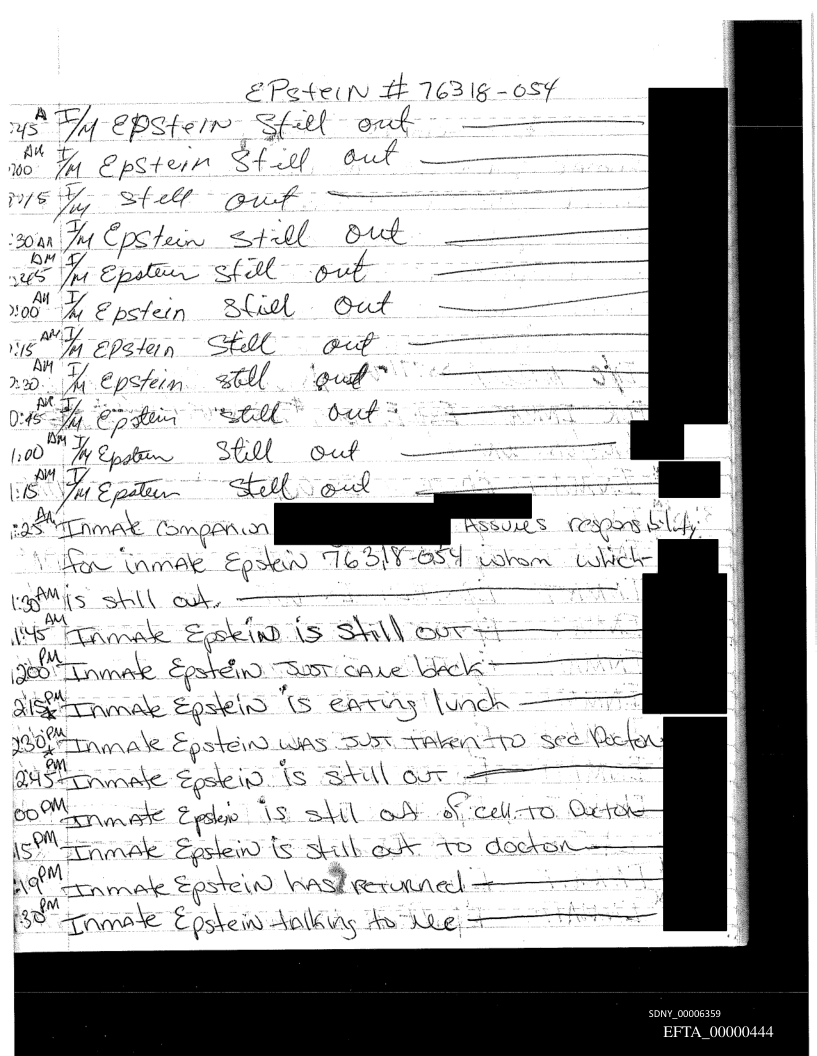 EPstein # 76318-054
:45 A I/M EPStein Still out
:00 AM I/M Epstein Still out
:15 I/M still out
:30 AM I/M Epstein still out
:45 AM I/M Epstein still out
:00 AM I/M Epstein Still out
:15 AM I/M EPStein Still out
:30 AM I/M Epstein still out
0:45 AM I/M Epstein still out
1:00 AM I/M Epstein Still out
1:15 AM I/M Epstein Still out
:25 AM Inmate companion Assumes responsibility
for inmate Epstein 76318-054 whom which
1:30 AM is still out.
1:45 AM Inmate Epstein is still out
200 PM Inmate Epstein Just came back
2:15 PM Inmate Epstein is eating lunch
2:30 PM Inmate Epstein was Just Taken to see Doctor
2:45 PM Inmate Epstein is still out
00 PM Inmate Epstein is still out of cell to Doctor
15 PM Inmate Epstein is still out to doctor
:19 PM Inmate Epstein has returned
:30 PM Inmate Epstein talking to me
SDNY_00006359
EFTA_00000444